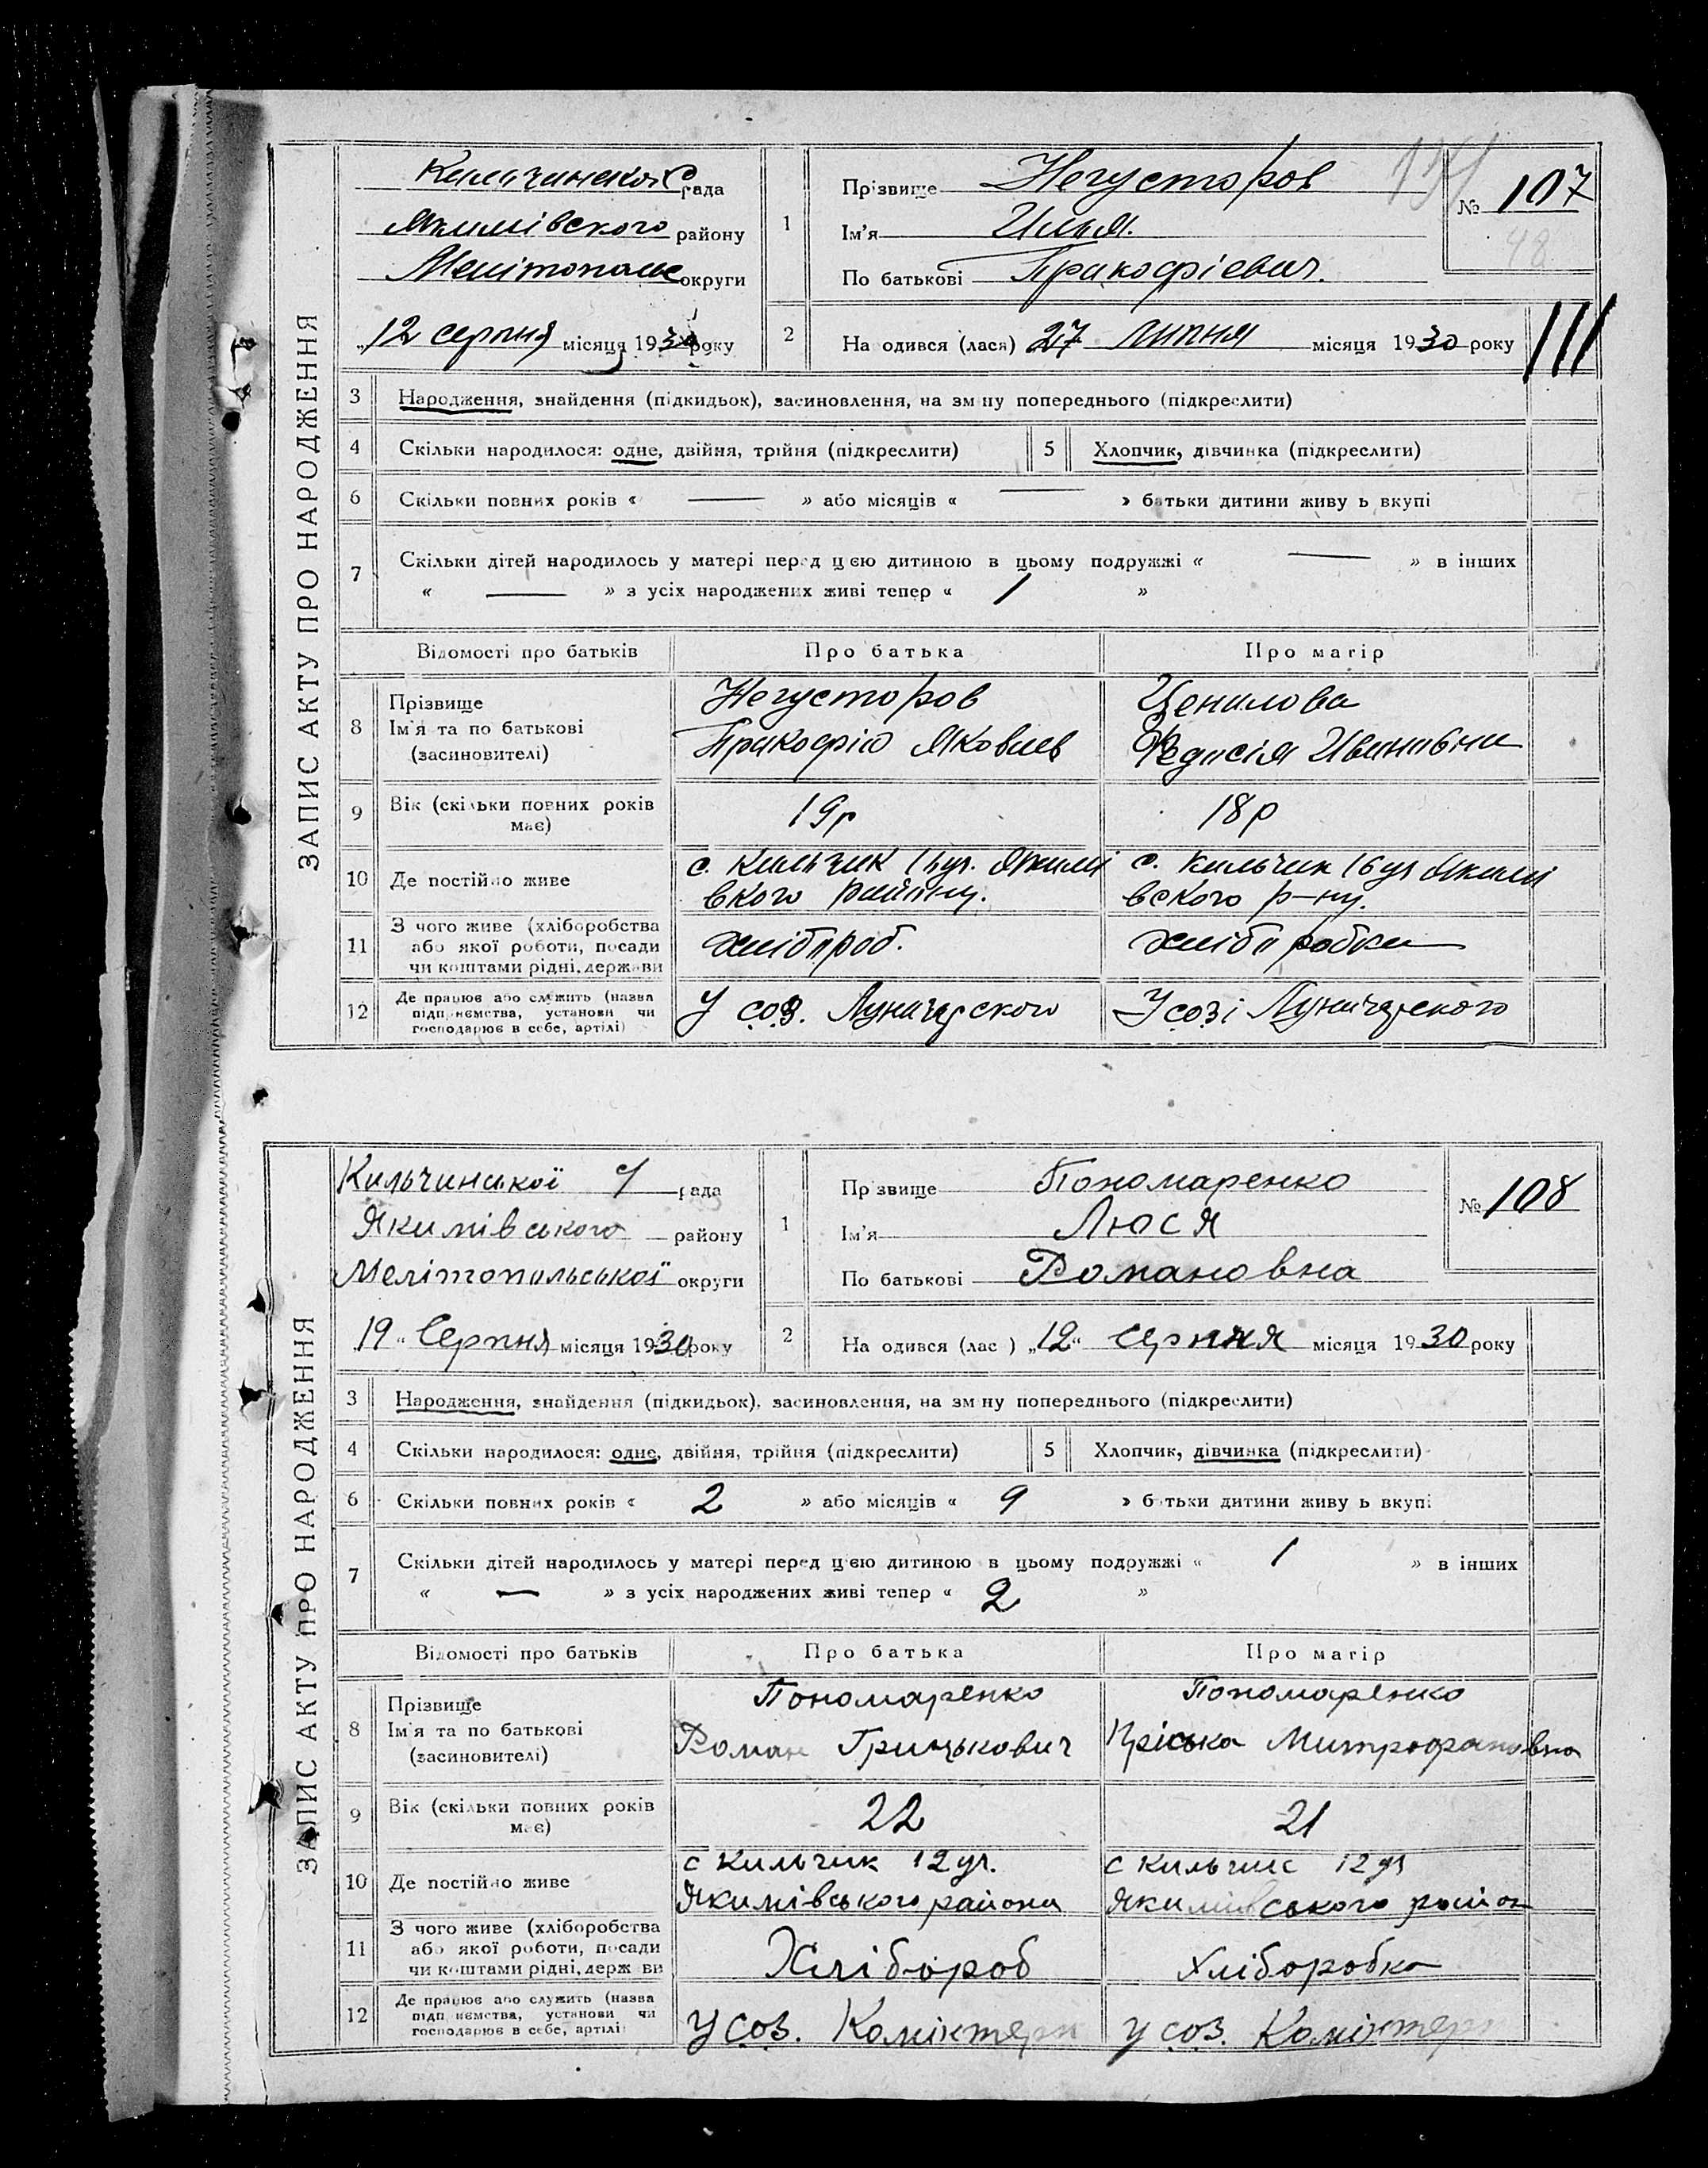 ЗАПИС АКТУ ПРО НАРОДЖЕННЯ
Кильчинской С рада
Якимівского району
Мелітопольс округи
„12 серпня місяця 1930 року
1
Прізвище Негусторов
Ім'я Илья.
По батькові Пракофіевич.
№ 107
48
2
На одився (лася) 27 липня місяця 1930 року
3 Народження, знайдення (підкидьок), засиновлення, на зм ну попереднього (підкреслити)
4 Скільки народилося: одне, двійня, трійня (підкреслити)
5 Хлопчик, дівчинка (підкреслити)
6 Скільки повних років « — » або місяців « — » батьки дитини живу ь вкупі
7 Скільки дітей народилось у матері перед цією дитиною в цьому подружжі « — » в інших
« — » з усіх народжених живі тепер « 1 »
Відомості про батьків Про батька Про матір
8 Прізвище
Ім'я та по батькові
(засиновителі)
Негусторов
Пракофій Яковлев
Ценилова
Федосія Ивановна
9 Вік (скільки повних років
має)
19р
18р
10 Де постійно живе
с. Кильчик 16 ул. Якимі
вкого району.
с. Кильчик 16 ул Якимі
вского р-ну.
11 З чого живе (хліборобства
або якої роботи, посади
чи коштами рідні, держави
хлібороб.
хліборобка
12 Де працює або служить (назва
підприємства, установи чи
господарює в себе, артілі)
У соз. Луначарского
У созі Луначарского
ЗАПИС АКТУ ПРО НАРОДЖЕННЯ
Кильчинської с/ рада
Якимівського району
Мелітопольської округи
19 „ Серпня місяця 1930 року
1
Пр звище Пономаренко
Ім'я Люся
По батькові Романовна
№ 108
2
На одився (лас ) „12“ серпня місяця 1930 року
3 Народження, знайдення (підкидьок), засиновлення, на зм ну попереднього (підкреслити)
4 Скільки народилося: одне, двійня, трійня (підкреслити)
5 Хлопчик, дівчинка (підкреслити)
6 Скільки повних років « 2 » або місяців « 9 » батьки дитини живу ь вкупі
7 Скільки дітей народилось у матері перед цією дитиною в цьому подружжі « 1 » в інших
« — » з усіх народжених живі тепер « 2 »
Відомості про батьків Про батька Про матір
8 Прізвище
Ім'я та по батькові
(засиновителі)
Пономаренко
Роман Грицькович
Пономаренко
Пріська Митрофановна
9 Вік (скільки повних років
має)
22
21
10 Де постійно живе
с Кильчик 12 ул.
Якимівського района
с Кильчик 12 ул
Якимівського район
11 З чого живе (хліборобства
або якої роботи, посади
чи коштами рідні, держ ви
Хлібороб
Хліборобка
12 Де працює або служить (назва
підприємства, установи чи
господарює в себе, артілі)
У соз. Комінтерн
У соз. Комінтерн